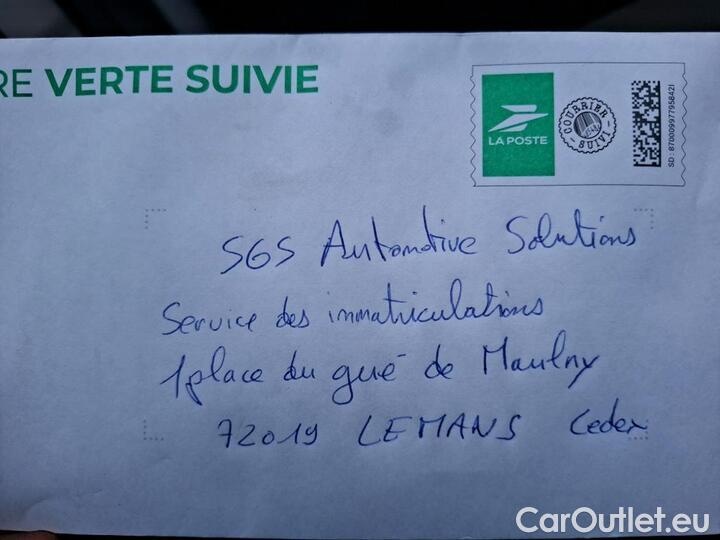 RE VERTE SUIVIE
LA POSTE
COURRIER
SUIVI
SD : 87000997795842I
SGS Automotive Solutions
Service des immatriculations
1 place du gué de Maulny
72019 LE MANS Cedex
CarOutlet.eu